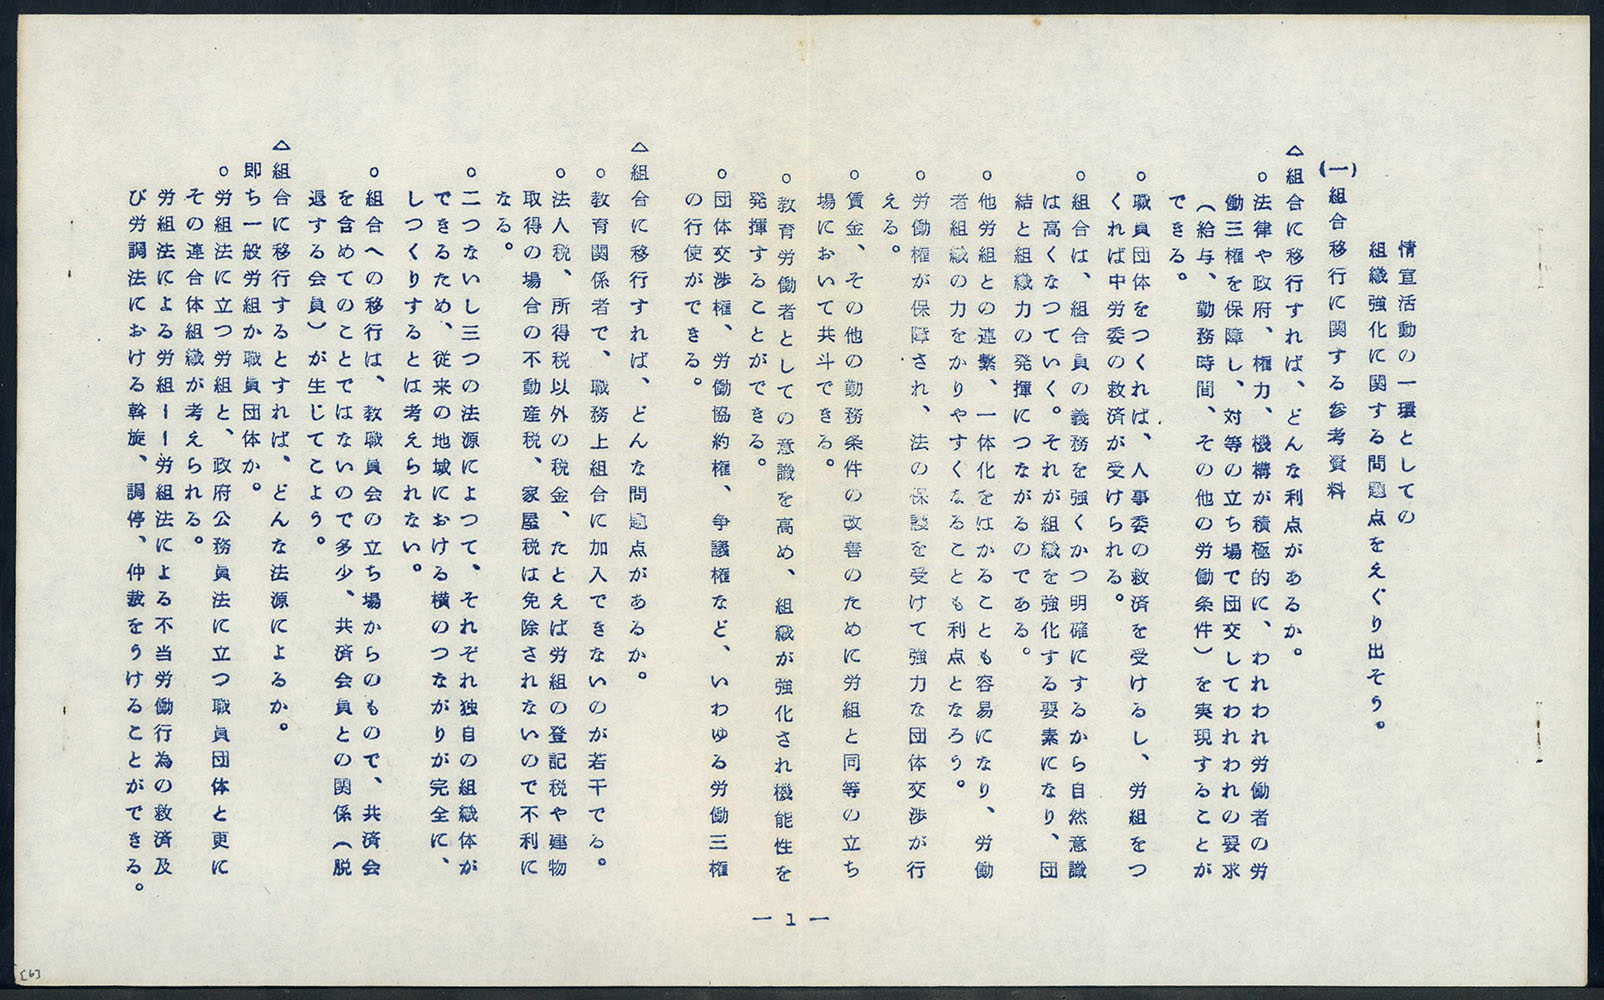 情宣活動の一環としての
組織強化に関する問題点をえぐり出そう。
(一)組合移行に関する参考資料
△組合に移行すれば、どんな利点があるか。
○法律や政府、権力、機構が積極的に、われわれ労働者の労
働三権を保障し、対等の立ち場で団交してわれわれの要求
(給与、勤務時間、その他の労働条件)を実現することが
できる。
○職員団体をつくれば、人事委の救済を受けるし、労組をつ
くれば中労委の救済が受けられる。
○組合は、組合員の義務を強くかつ明確にするから自然意識
は高くなつていく。それが組織を強化する要素になり、団
結と組織力の発揮につながるのである。
○他労組との連繫、一体化をはかることも容易になり、労働
者組織の力をかりやすくなることも利点となろう。
○労働権が保障され、法の保護を受けて強力な団体交渉が行
える。
○賃金、その他の勤務条件の改善のために労組と同等の立ち
場において共斗できる。
○教育労働者としての意識を高め、組織が強化され機能性を
発揮することができる。
○団体交渉権、労働協約権、争議権など、いわゆる労働三権
の行使ができる。
△組合に移行すれば、どんな問題点があるか。
○教育関係者で、職務上組合に加入できないのが若干でる。
○法人税、所得税以外の税金、たとえば労組の登記税や建物
取得の場合の不動産税、家屋税は免除されないので不利に
なる。
○二つないし三つの法源によつて、それぞれ独自の組織体が
できるため、従来の地域における横のつながりが完全に、
しつくりするとは考えられない。
○組合への移行は、教職員会の立ち場からのもので、共済会
を含めてのことではないので多少、共済会員との関係(脱
退する会員)が生じてこよう。
△組合に移行するとすれば、どんな法源によるか。
即ち一般労組か職員団体か。
○労組法に立つ労組と、政府公務員法に立つ職員団体と更に
その連合体組織が考えられる。
労組法による労組ーー労組法による不当労働行為の救済及
び労調法における斡旋、調停、仲裁をうけることができる。
— 1 —
[6]